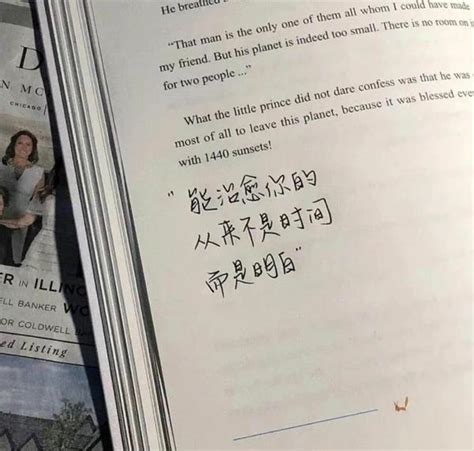 He breathed
"That man is the only one of them all whom I could have made
my friend. But his planet is indeed too small. There is no room on
for two people ..."
What the little prince did not dare confess was that he was
most of all to leave this planet, because it was blessed
with 1440 sunsets!
"能治愈你的
从来不是时间
而是明白"
CHICAGO
IN ILLIN
ELL BANKER
OR COLDWELL
ed Listing